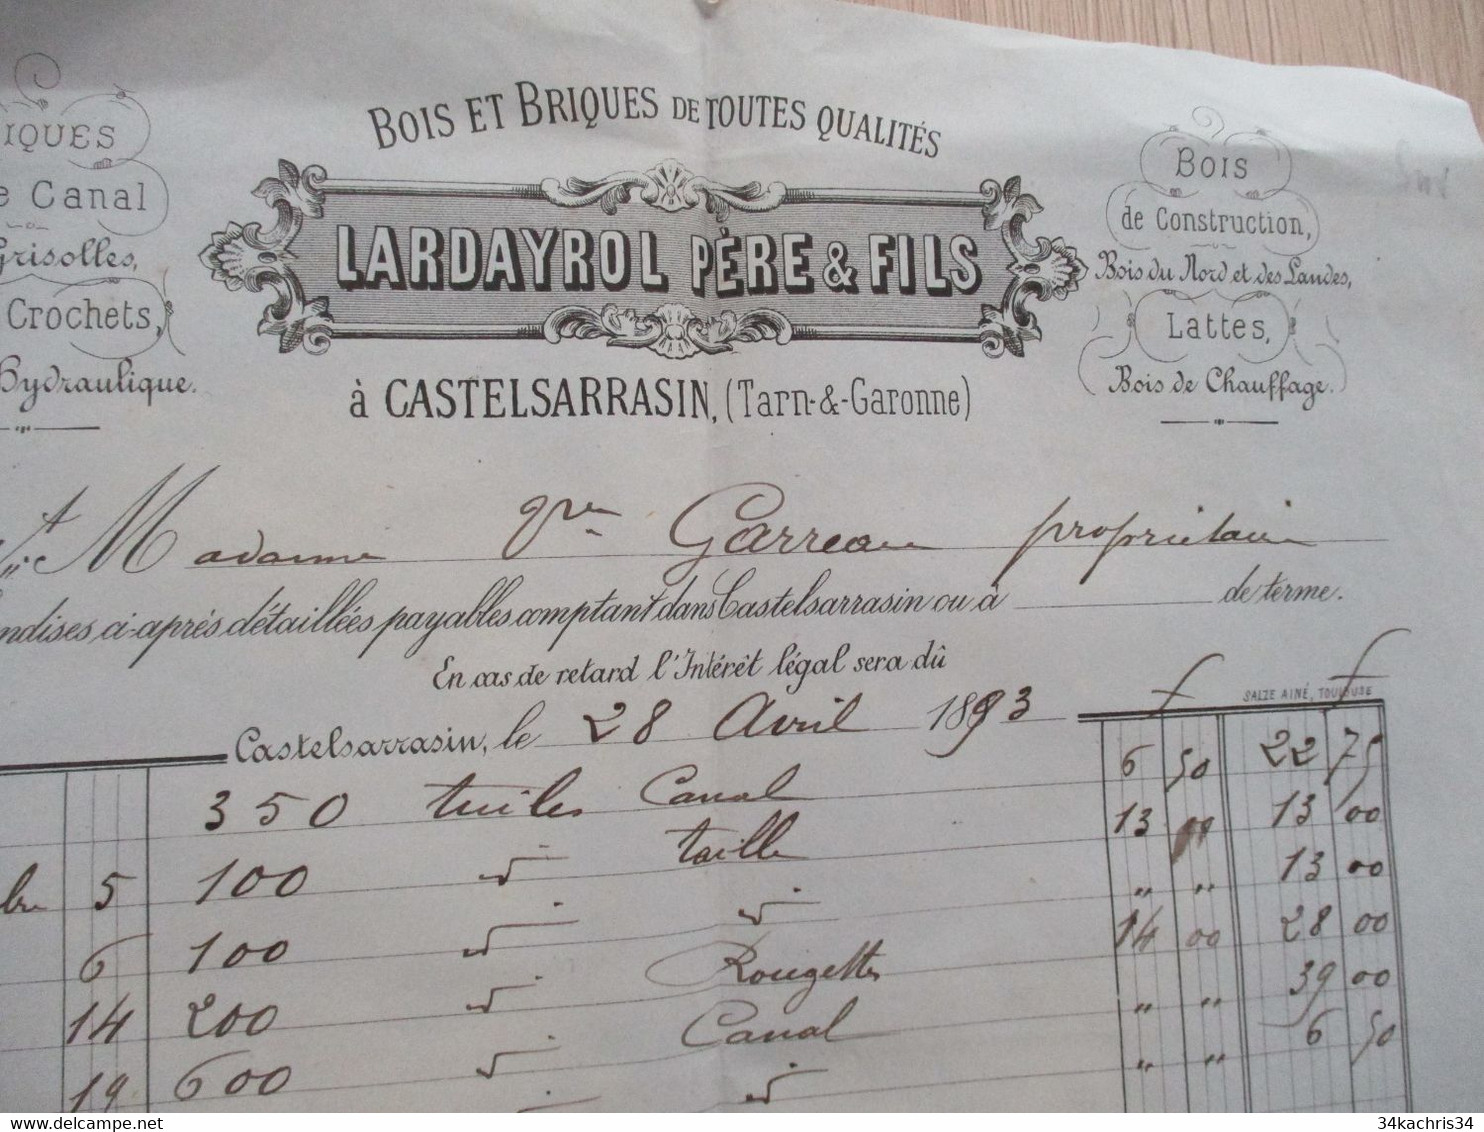 BOIS ET BRIQUES DE TOUTES QUALITÉS
LARDAYROL PÈRE & FILS
à CASTELSARRASIN, (Tarn-&-Garonne)
IQUES
e Canal
Grisolles,
Crochets,
Hydraulique.
BOIS
de Construction,
Bois du Nord et des Landes,
Lattes,
Bois de Chauffage.
Madame Garreau propriétaire
ndises, ci-après détaillées payables comptant dans Castelsarrasin ou à de terme.
En cas de retard l'Intérêt légal sera dû
SALZE AINÉ, TOULOUSE
Castelsarrasin, le 28 Avril 1893
f f
350 tuiles Canal 6 50 22 75
5 100 " taille 13 00 13 00
6 100 " " " " 13 00
14 200 " Rougettes 14 00 28 00
19 600 " Canal " " 39 00
" " " " 6 50
34kachris34
34kachris34